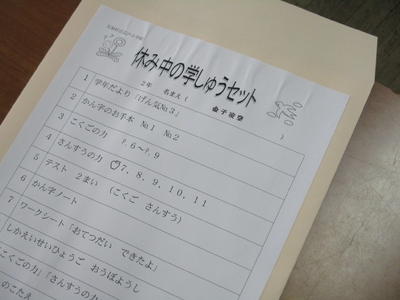 休み中の学しゅうセット
2年 名まえ（ ）
1 学年だより「げん気№3」
2 かん字のお手本 №1 №2
3 こくごの力 P.6～P.9
4 さんすうの力 7、8、9、10、11
5 テスト 2まい （こくご さんすう）
6 かん字ノート
7 ワークシート「おてつだい できたよ」
しかえいせいひょうご おうぼようし
「こくごの力」「さんすうの力」
のこたえ